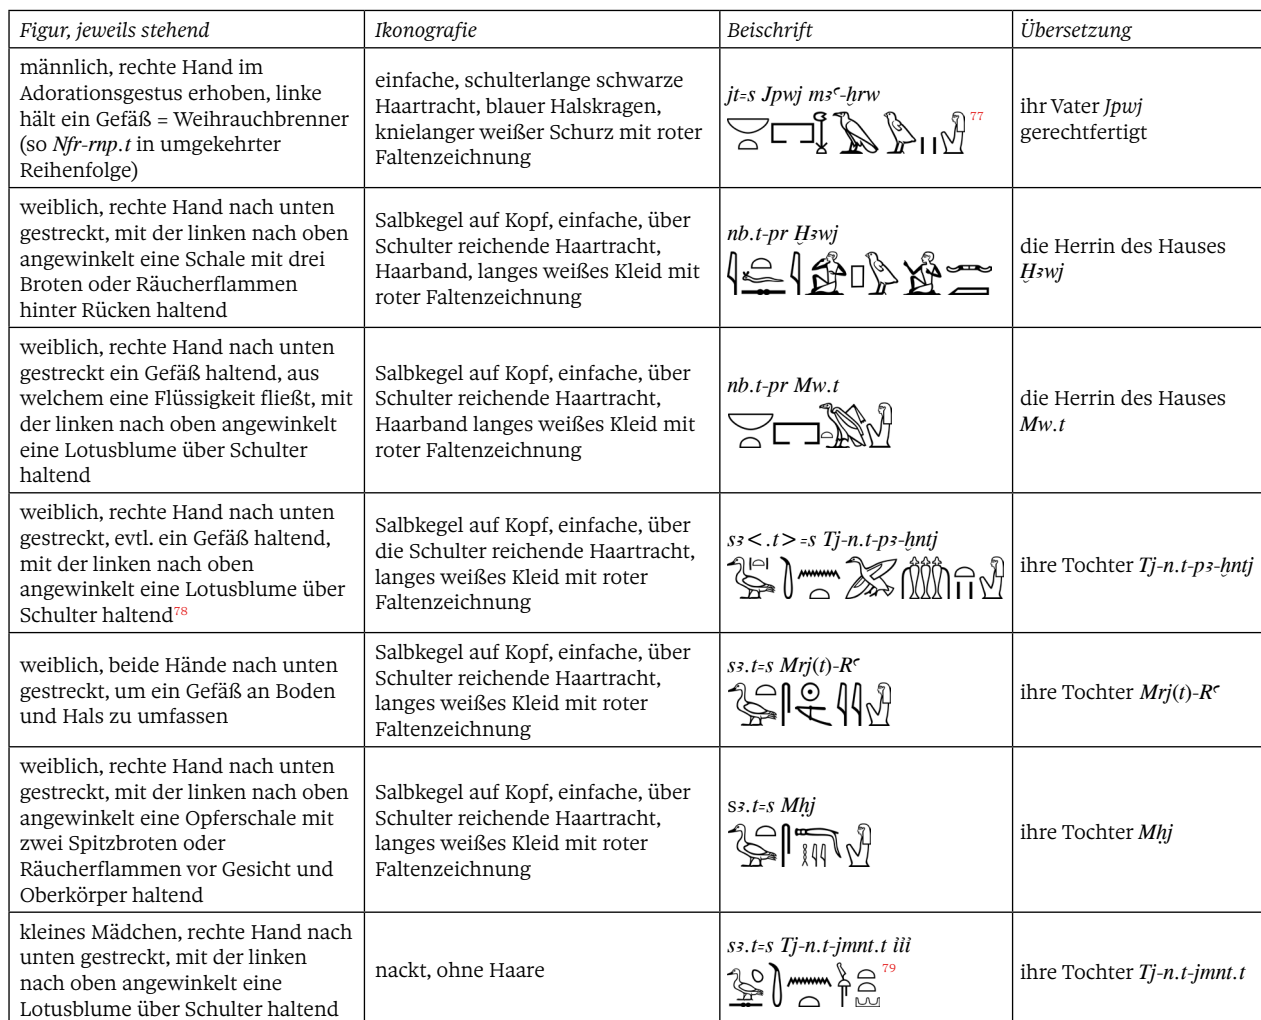 Figur, jeweils stehend
Ikonografie
Beischrift
Übersetzung
männlich, rechte Hand im
Adorationsgestus erhoben, linke
hält ein Gefäß = Weihrauchbrenner
(so Nfr-rnp.t in umgekehrter
Reihenfolge)
einfache, schulterlange schwarze
Haartracht, blauer Halskragen,
knielanger weißer Schurz mit roter
Faltenzeichnung
jt=s Jpwj mꜣꜥ-ḫrw
77
ihr Vater Jpwj
gerechtfertigt
weiblich, rechte Hand nach unten
gestreckt, mit der linken nach oben
angewinkelt eine Schale mit drei
Broten oder Räucherflammen
hinter Rücken haltend
Salbkegel auf Kopf, einfache, über
Schulter reichende Haartracht,
Haarband, langes weißes Kleid mit
roter Faltenzeichnung
nb.t-pr Ḫꜣwj
die Herrin des Hauses
Ḫꜣwj
weiblich, rechte Hand nach unten
gestreckt ein Gefäß haltend, aus
welchem eine Flüssigkeit fließt, mit
der linken nach oben angewinkelt
eine Lotusblume über Schulter
haltend
Salbkegel auf Kopf, einfache, über
Schulter reichende Haartracht,
Haarband langes weißes Kleid mit
roter Faltenzeichnung
nb.t-pr Mw.t
die Herrin des Hauses
Mw.t
weiblich, rechte Hand nach unten
gestreckt, evtl. ein Gefäß haltend,
mit der linken nach oben
angewinkelt eine Lotusblume über
Schulter haltend78
Salbkegel auf Kopf, einfache, über
die Schulter reichende Haartracht,
langes weißes Kleid mit roter
Faltenzeichnung
sꜣ<.t>=s Tj-n.t-pꜣ-ḫntj
ihre Tochter Tj-n.t-pꜣ-ḫntj
weiblich, beide Hände nach unten
gestreckt, um ein Gefäß an Boden
und Hals zu umfassen
Salbkegel auf Kopf, einfache, über
Schulter reichende Haartracht,
langes weißes Kleid mit roter
Faltenzeichnung
sꜣ.t=s Mrj(t)-Rꜥ
ihre Tochter Mrj(t)-Rꜥ
weiblich, rechte Hand nach unten
gestreckt, mit der linken nach oben
angewinkelt eine Opferschale mit
zwei Spitzbroten oder
Räucherflammen vor Gesicht und
Oberkörper haltend
Salbkegel auf Kopf, einfache, über
Schulter reichende Haartracht,
langes weißes Kleid mit roter
Faltenzeichnung
sꜣ.t=s Mḥj
ihre Tochter Mḥj
kleines Mädchen, rechte Hand nach
unten gestreckt, mit der linken
nach oben angewinkelt eine
Lotusblume über Schulter haltend
nackt, ohne Haare
sꜣ.t=s Tj-n.t-jmnt.t
79
ihre Tochter Tj-n.t-jmnt.t